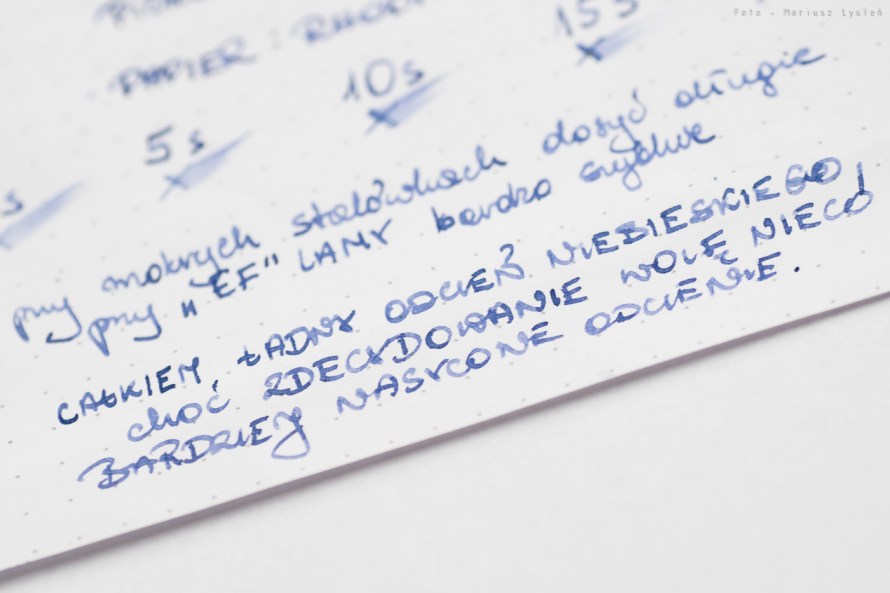 Foto - Mariusz Lysień
PAPIER : RHODI
5s
10s
15s
przy mokrych stalówkach dosyć długie
przy "EF" LAMY bardzo szybkie
CAŁKIEM ŁADNY ODCIEŃ NIEBIESKIEGO,
choć ZDECYDOWANIE WOLĘ NIECO
BARDZIEJ NASYCONE ODCIENIE.